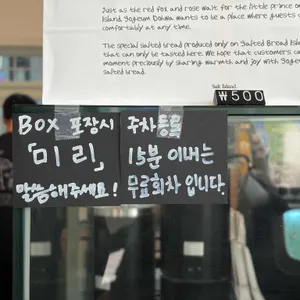 Just as the red fox and rose wait for the little prince on
Island, Sogeum Dakwa wants to be a place where guests
comfortably at any time.
The special salted bread produced only on Salted Bread Isla
that can only be tasted here. We hope that customers ca
moment preciously by sharing warmth and joy with Sogeum
salted bread.
Salt Island
₩500
BOX 포장시
「미리」
말씀해주세요!
주차등록
15분 이내는
무료회차 입니다.